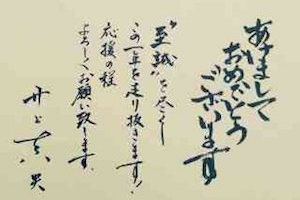 あけまして
おめでとう
ございます
“至誠”を尽くし
この一年を走り抜きます!
応援の程
よろしくお願い致します。
井上